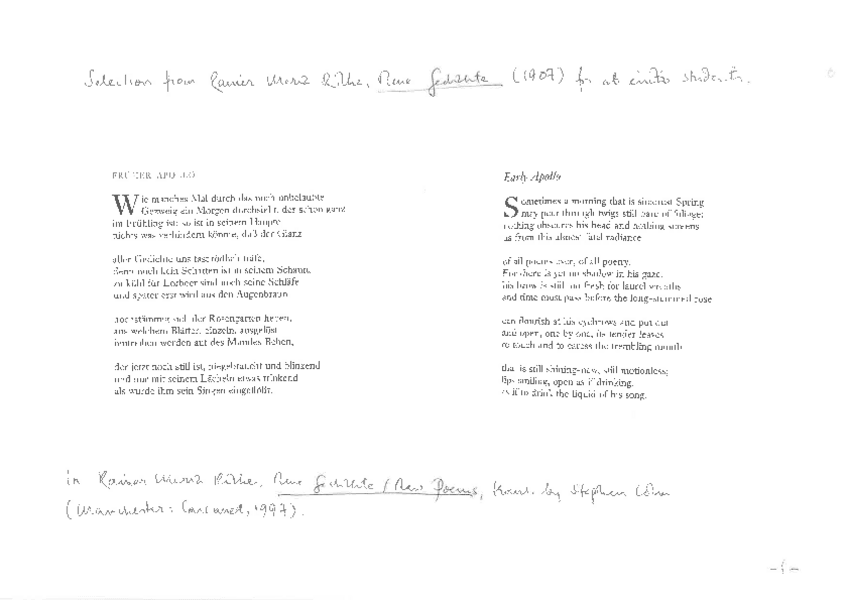 Selection from Rainer Maria Rilke, Neue Gedichte (1907) for ab initio students.
FRÜHER APOLLO
Wie manches Mal durch das noch unbelaubte
Gezweig ein Morgen durchsieht, der schon ganz
im Frühling ist: so ist in seinem Haupte
nichts was verhindern könnte, daß der Glanz
aller Gedichte uns fast tödlich träfe;
denn noch kein Schatten ist in seinem Schaun,
zu kühl für Lorbeer sind noch seine Schläfe
und später erst wird aus den Augenbraun
hochstämmig sich der Rosengarten heben,
aus welchem Blätter, einzeln, ausgelöst
hintreiben werden auf des Mundes Beben,
der jetzt noch still ist, niegebraucht und blinkend
und nur mit seinem Lächeln etwas trinkend
als würde ihm sein Singen eingeflößt.
Early Apollo
Sometimes a morning that is sincerest Spring
may peer through twigs still bare of foliage:
nothing obscures his head and nothing screens
us from this almost fatal radiance
of all poems ever, of all poetry.
For there is yet no shadow in his gaze,
his brow is still too fresh for laurel wreaths
and time must pass before the long-stemmed rose
can flourish at his eyebrows and put out
and open, one by one, its tender leaves
to touch and to caress the trembling mouth
that is still shining-new, still motionless;
lips smiling, open as if drinking,
as if to drink the liquid of his song.
in Rainer Maria Rilke, Neue Gedichte / New Poems, transl. by Stephen Cohn
(Manchester: Carcanet, 1997).